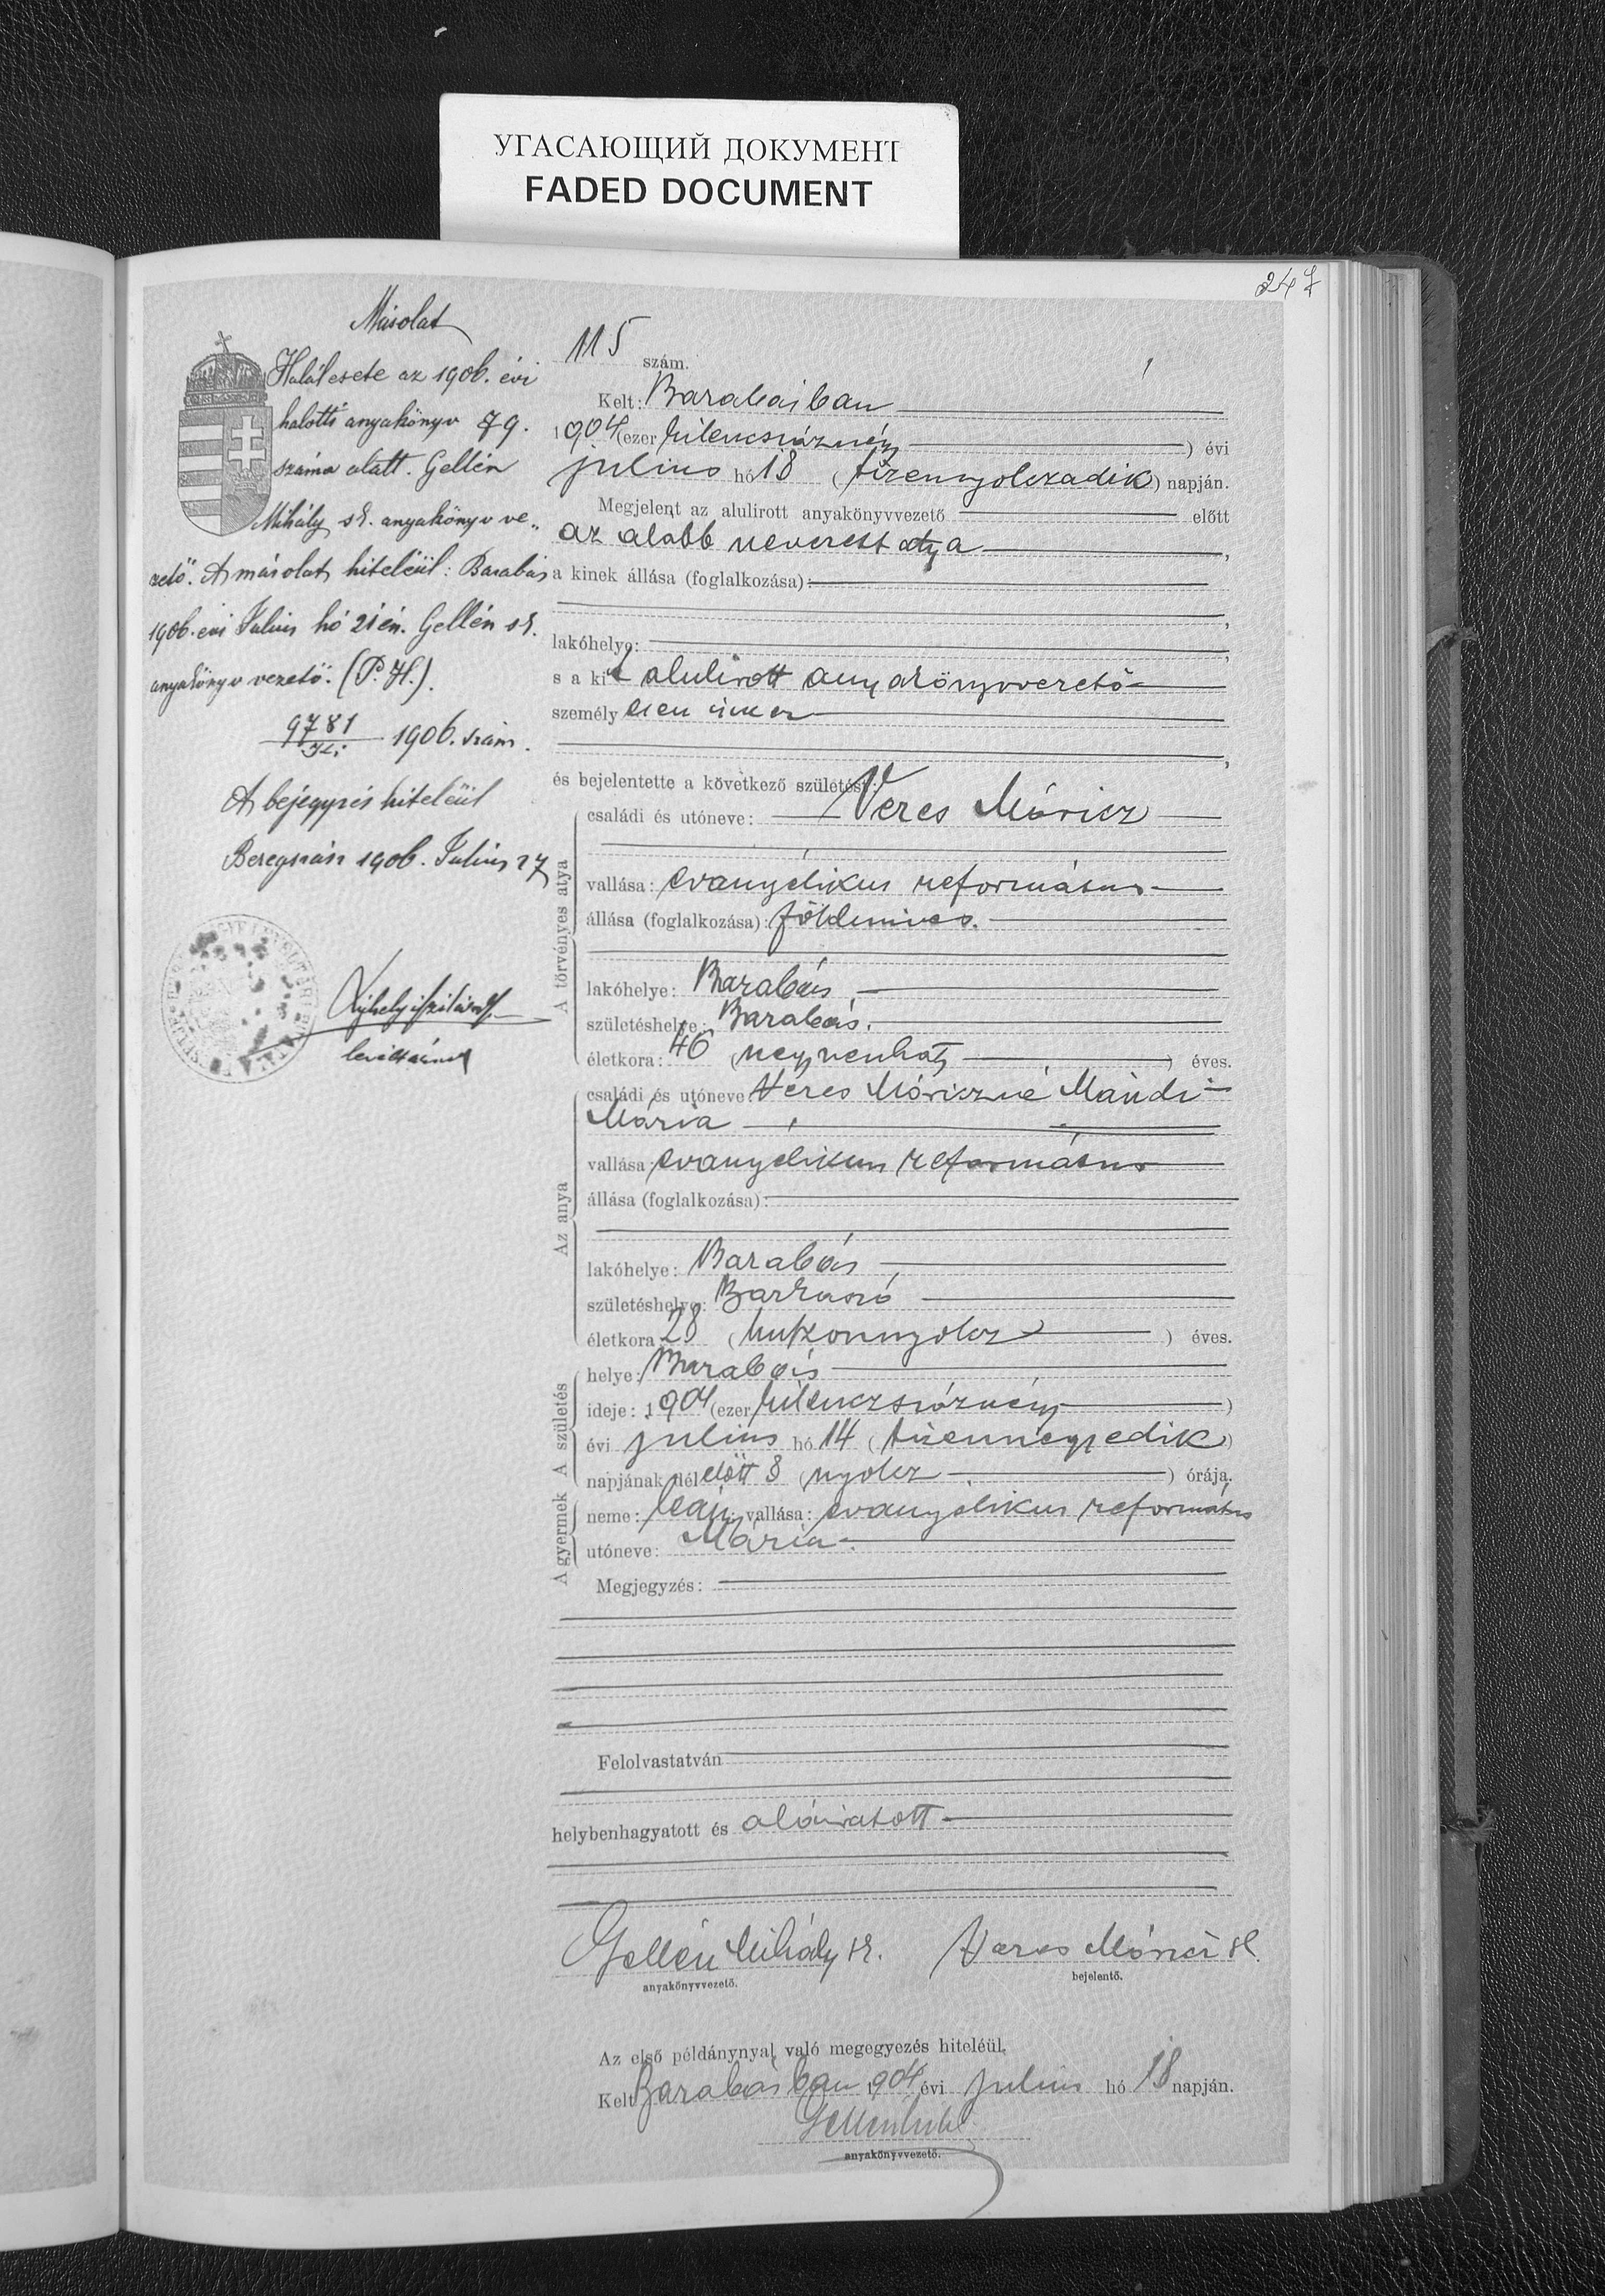 УГАСАЮЩИЙ ДОКУМЕНТ
FADED DOCUMENT
247
Másolat
Halálesete az 1906. évi
halotti anyakönyv 79.
száma alatt. Gellén
Mihály sk. anyakönyv ve„
zető. A másolat hiteléül: Barabás
1906. évi Julius hó 21én. Gellén sk.
anyakönyv vezető. (P. H.).
9781
1906. szám.
A bejegyzés hiteléül
Beregszász 1906. Julius 27
levéltárnok
115 szám.
Kelt: Barabásban
1904 (ezer kilencszáznégy) évi
julius hó 18 (tizennyolczadik) napján.
Megjelent az alulirott anyakönyvvezető előtt
az alább nevezett atya,
a kinek állása (foglalkozása):
,
lakóhelye: ,
s a kit alulirott anyakönyvvezető
személyesen ismer
,
és bejelentette a következő születést:
A törvényes atya
családi és utóneve: Veres Móricz
vallása: evangélikus református
állása (foglalkozása): földmives.
lakóhelye: Barabás
születéshelye: Barabás.
életkora: 46 (negyvenhat) éves.
Az anya
családi és utóneve: Veres Móriczné Mándi
Mária
vallása: evangélikus református
állása (foglalkozása):
lakóhelye: Barabás
születéshelye: Barkaszó
életkora: 28 (huszonnyolcz) éves.
A születés
helye: Barabás
ideje: 1904 (ezer kilenczszáznégy)
évi julius hó 14 (tizennegyedik)
napjának délelőtt 8 (nyolcz) órája.
A gyermek
neme: leány; vallása: evangélikus református
utóneve: Mária.
Megjegyzés:
Felolvastatván
helybenhagyatott és aláiratott
Gellén Mihály sk. Veres Móricz sk.
anyakönyvvezető. bejelentő.
Az első példánynyal való megegyezés hiteléül.
Kelt Barabásban 1904 évi julius hó 18 napján.
anyakönyvvezető.